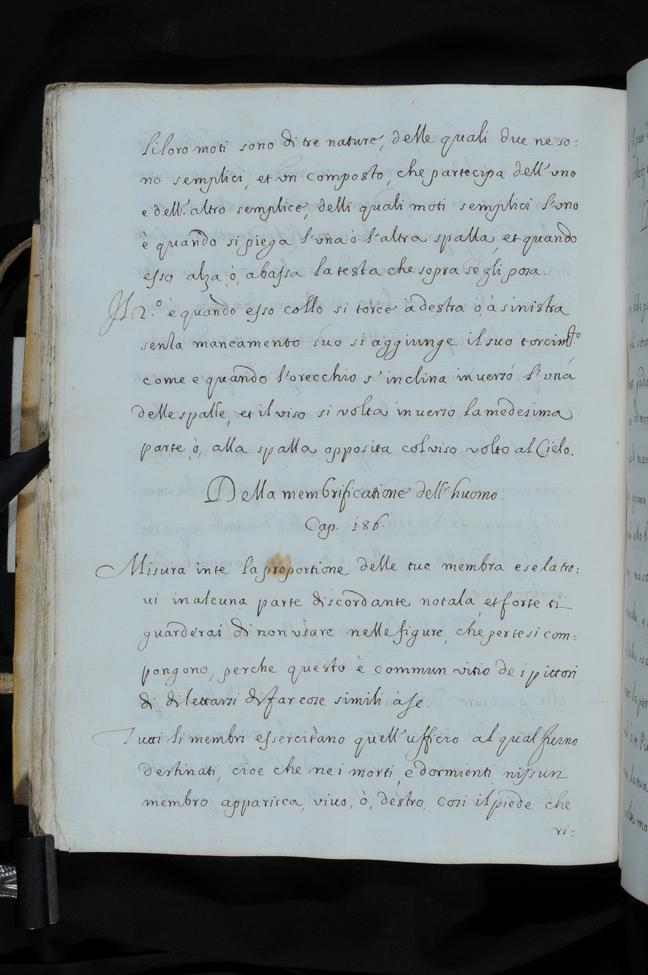 li loro moti sono di tre nature, delle quali due ne so:
no semplici, et un composto, che partecipa dell'uno
e dell'altro semplice, delli quali moti semplici l'uno
è quando si piega l'una ò l'altra spalla, et quando
esso alza, ò, abassa la testa che sopra se gli posa.
Il 2.º è quando esso collo si torce à destra ò à sinistra
senza mancamento suo si aggiunge il suo torcim.to
come e quando l'orecchio s'inclina inverso l'una
delle spalle, et il viso si volta inverso la medesima
parte, ò, alla spalla opposita col viso volto al Cielo.
Della membrificatione dell'huomo.
Cap. 186.
Misura in te la proportione delle tue membra e se la tro:
vi in alcuna parte discordante notala, et forte ti
guarderai di non usare nelle figure, che per te si com:
pongono, perche questo è commun vitio de i pittori
di dilettarsi di far cose simili à se.
Tutti li membri essercitano quell'ufficio al qual furno
destinati, cioe che ne i morti, e dormienti nissun
membro apparisca, vivo, ò, destro, cosi il piede che
ri: